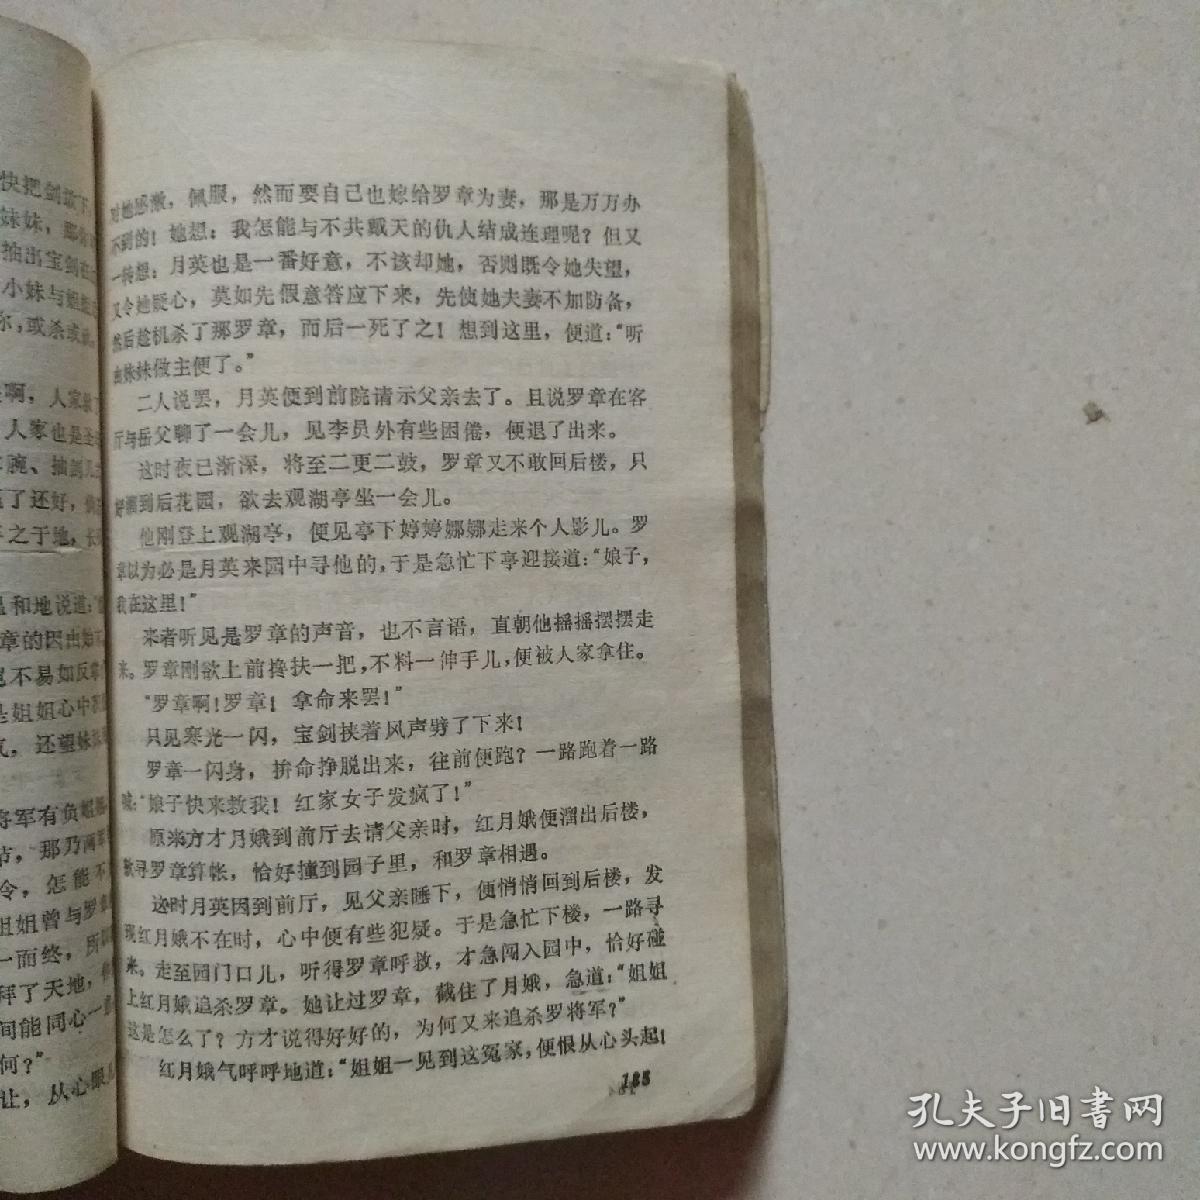 快把剑放下
妹妹，那
抽出宝剑
小妹与姐
尔，或杀或
啊，人家
人家也是
腕、抽剑
了还好，
之于地，长
温和地说道：
章的因由
不易如反掌
是姐姐心中
气，还望妹
将军有负姐
节，那乃两
令，怎能不
姐姐曾与罗
一而终，所
拜了天地，
间能同心一
何？”
让，从心眼
对她感激，佩服，然而要自己也嫁给罗章为妻，那是万万办
不到的！她想：我怎能与不共戴天的仇人结成连理呢？但又
一转想：月英也是一番好意，不该却她，否则既令她失望，
又令她疑心，莫如先假意答应下来，先使她夫妻不加防备，
然后趁机杀了那罗章，而后一死了之！想到这里，便道：“听
由妹妹做主便了。”
二人说罢，月英便到前院请示父亲去了。且说罗章在客
厅与岳父聊了一会儿，见李员外有些困倦，便退了出来。
这时夜已渐深，将至二更二鼓，罗章又不敢回后楼，只
好溜到后花园，欲去观湖亭坐一会儿。
他刚登上观湖亭，便见亭下婷婷娜娜走来个人影儿。罗
章以为必是月英来园中寻他的，于是急忙下亭迎接道：“娘子，
我在这里！”
来者听见是罗章的声音，也不言语，直朝他摇摇摆摆走
来。罗章刚欲上前搀扶一把，不料一伸手儿，便被人家拿住。
“罗章啊！罗章！拿命来罢！”
只见寒光一闪，宝剑挟着风声劈了下来！
罗章一闪身，拚命挣脱出来，往前便跑？一路跑着一路
喊：“娘子快来救我！红家女子发疯了！”
原来方才月娥到前厅去请父亲时，红月娥便溜出后楼，
欲寻罗章算帐，恰好撞到园子里，和罗章相遇。
这时月英因到前厅，见父亲睡下，便悄悄回到后楼，发
现红月娥不在时，心中便有些犯疑。于是急忙下楼，一路寻
来。走至园门口儿，听得罗章呼救，才急闯入园中，恰好碰
上红月娥追杀罗章。她让过罗章，截住了月娥，急道：“姐姐
这是怎么了？方才说得好好的，为何又来追杀罗将军？”
红月娥气呼呼地道：“姐姐一见到这冤家，便恨从心头起！
185
孔夫子旧书网
www.kongfz.com